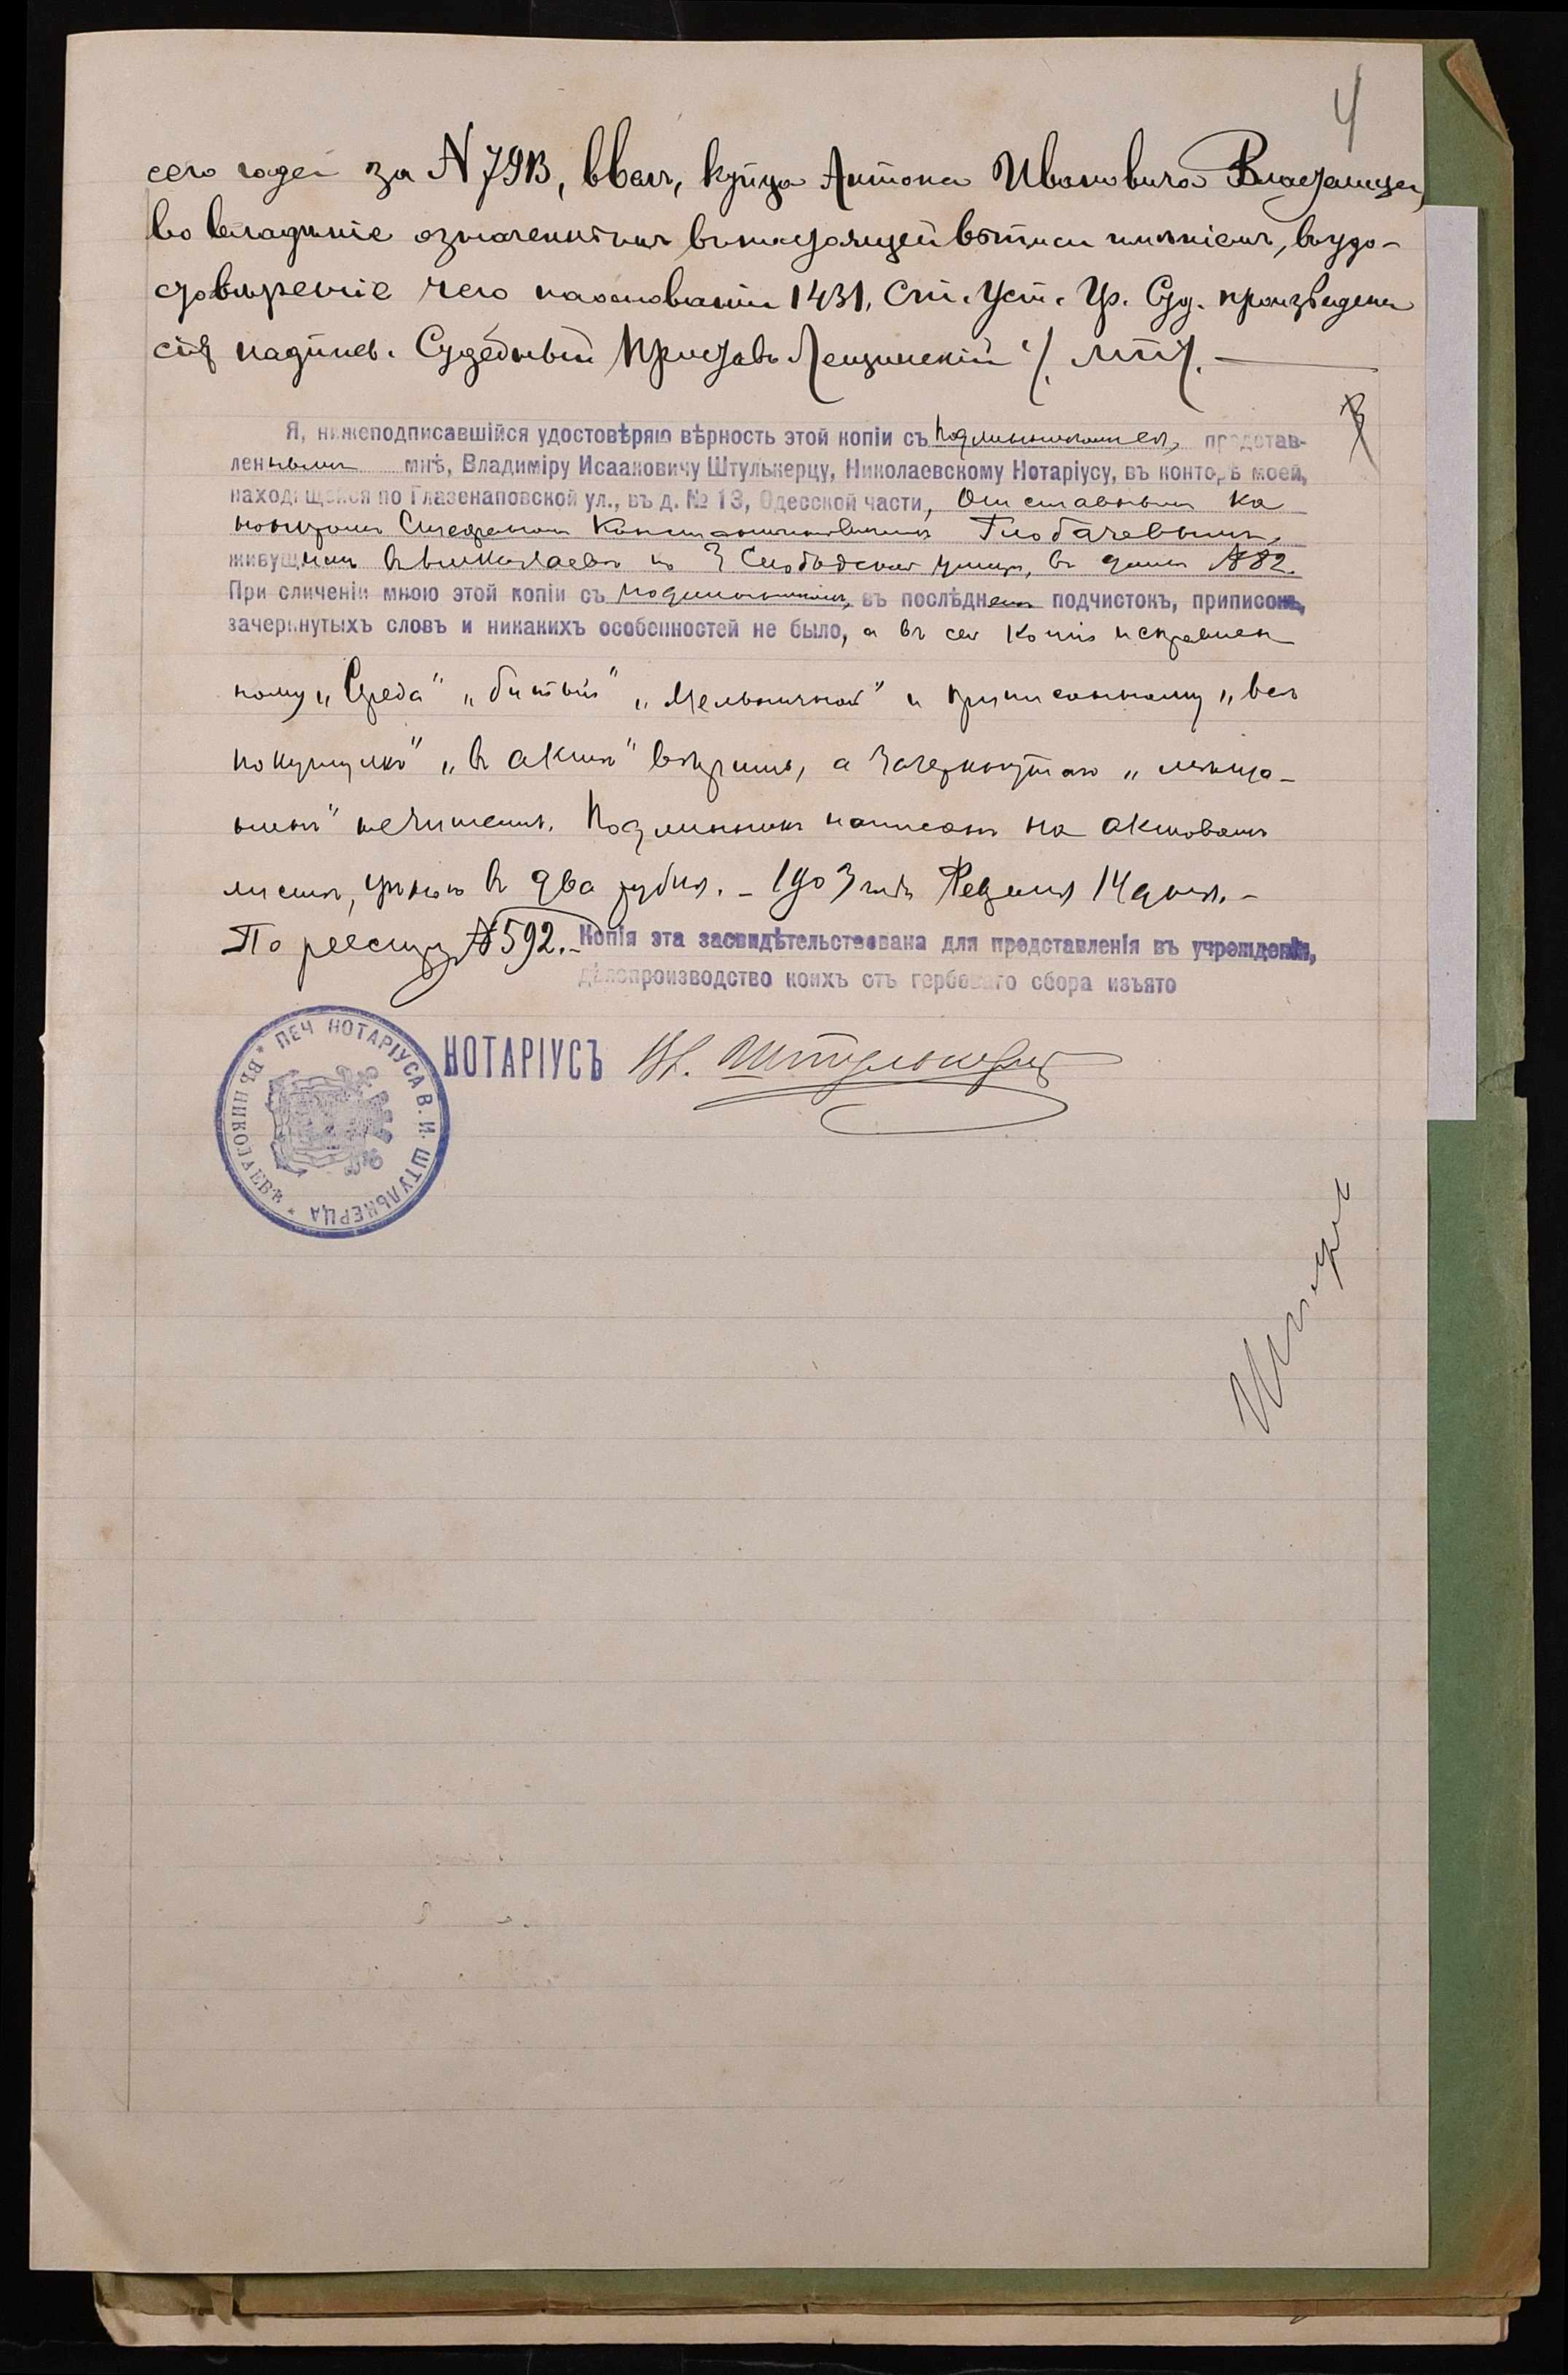 4
сего года за N 7913, ввелъ, купца Антона Ивановича
во владѣніе означеннымъ въ настоящей выписи имѣніемъ, въ удо-
стовѣреніе чего на основаніи 1431, Ст. Уст. Гр. Суд. произведена
сія надпись. Судебный Приставъ Лещинскій /. МП/. —
3
Я, нижеподписавшійся удостовѣряю вѣрность этой копіи съ подлинникомъ ея, представ-
леннымъ мнѣ, Владиміру Исааковичу Штулькерцу, Николаевскому Нотаріусу, въ конторѣ моей,
находящейся по Глазенаповской ул., въ д. № 13, Одесской части, Отставнымъ ка
нониромъ Стефаномъ Константиновичемъ Глобачевымъ,
живущимъ въ Николаевѣ по 3 Слободской улицѣ, въ домѣ № 82.
При сличеніи мною этой копіи съ подлинникомъ, въ послѣднемъ подчистокъ, приписокъ,
зачеркнутыхъ словъ и никакихъ особенностей не было, а въ сей копіи исправлен
ному „Среда" „битый" „Мельничной" и приписанному „всѣ
покупщикъ" „въ актѣ" вѣрить, а зачеркнутаго „мѣща-
нинъ" не читать. Подлинникъ написанъ на актовомъ
листѣ, цѣною въ два рубля. – 1903 года Февраля 14 дня. –
По реестру № 592. – Копія эта засвидѣтельствована для представленія въ учрежденія,
дѣлопроизводство коихъ отъ гербоваго сбора изъято
* ПЕЧ НОТАРІУСА В. И. ШТУЛЬКЕРЦА * ВЪ НИКОЛАЕВѢ
НОТАРІУСЪ Вл. Штулькерцъ